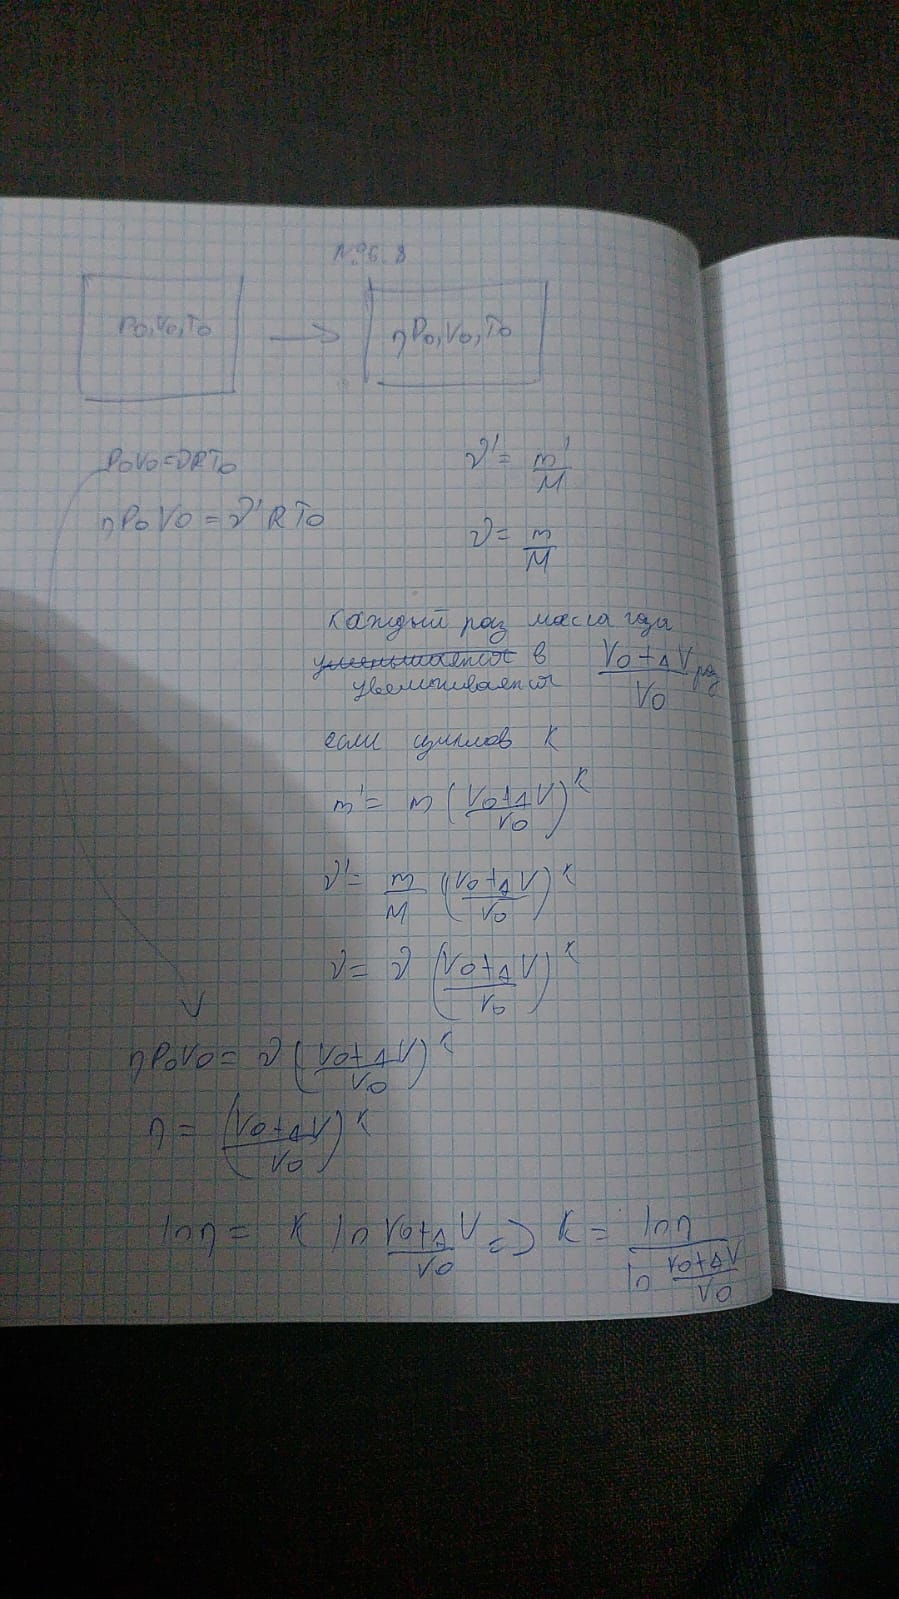 N.96.8
P₀,V₀,T₀ → ηP₀,V₀,T₀
P₀V₀=νRT₀
ηP₀V₀=ν'RT₀
ν'=m'/M
ν=m/M
Каждый раз масса газа
уменьшается в (V₀+ΔV)/V₀ раз
увеличивается
если циклов K
m'= m((V₀+ΔV)/V₀)^K
ν'= m/M ((V₀+ΔV)/V₀)^K
ν= ν((V₀+ΔV)/V₀)^K
ηP₀V₀= ν((V₀+ΔV)/V₀)^K
η = ((V₀+ΔV)/V₀)^K
lnη = K ln (V₀+ΔV)/V₀ => K = lnη/(ln (V₀+ΔV)/V₀)